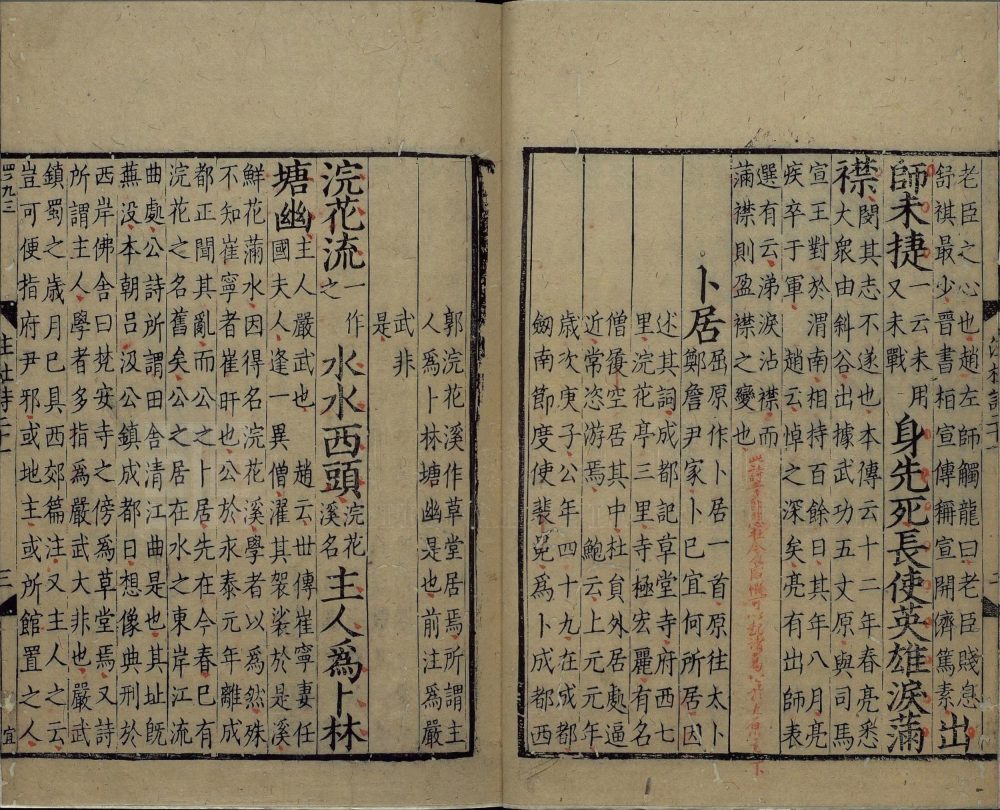 老臣之心也趙左師觸龍曰老臣賤息
舒祺最少晉書桓宣傳稱宣開濟篤素出
師未捷一云未用又未戰身先死長使英雄淚滿
襟閔其志不遂也本傳云十二年春亮悉
大衆由斜谷出據武功五丈原與司馬
宣王對於渭南相持百餘日其年八月亮
疾卒于軍趙云悼之深矣亮有出師表
選有云涕淚沾襟而
滿襟則盈襟之變也
卜居屈原作卜居一首原往太卜
鄭詹尹家卜已宜何所居因
述其詞成都記草堂寺府西七
里浣花亭三里寺極宏麗有名
僧復空居其中杜員外居處逼
近常恣游焉鮑云上元元年
歲次庚子公年四十九在成都
劒南節度使裴冕爲卜成都西
郭浣花溪作草堂居焉所謂主
人爲卜林塘幽是也前注爲嚴
武非
是
浣花流一作之水水西頭浣花溪名主人爲卜林
塘幽主人嚴武也趙云世傳崔寧妻任
國夫人逢一異僧濯其袈裟於是溪
鮮花滿水因得名浣花溪學者以爲然殊
不知崔寧者崔旰也公於永泰元年離成
都正聞其亂而公之卜居先在今春已有
浣花之名舊矣公之居在水之東岸江流
曲處公詩所謂田舍清江曲是也其址旣
蕪没本朝吕汲公鎮成都日想像典刑於
西岸佛舍曰梵安寺之傍爲草堂焉又詩
所謂主人學者多指爲嚴武大非也嚴武
鎮蜀之歲月已具西郊篇注又主人之云
豈可便指府尹邪或地主或所館置之人
三
宜